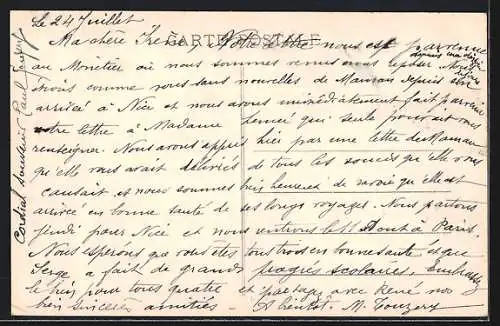 Le 24 Juillet
CARTE POSTALE
Ma chère Irène Votre lettre nous est parvenue
au Monêtier où nous sommes venus nous reposer
étions comme vous sans nouvelles de Maman depuis son
arrivée à Nice et nous avons immédiatement fait parvenir
votre lettre à Madame qui seule pouvait vous
renseigner. Nous avons appris hier par une lettre de Maman
qu'elle vous avait délivrés de tous les soucis qu'elle vous
causait et nous sommes bien heureux de savoir qu'elle est
arrivée en bonne santé de ses longs voyages. Nous partons
jeudi pour Nice et nous rentrons le 11 Août à Paris.
Nous espérons que vous êtes tous trois en bonne santé et que
Serge a fait de grands progrès scolaires. Embrassez
le bien pour tous quatre et partagez avec René nos
bien sincères amitiés. A bientôt. M.
Cordial souvenir Paul